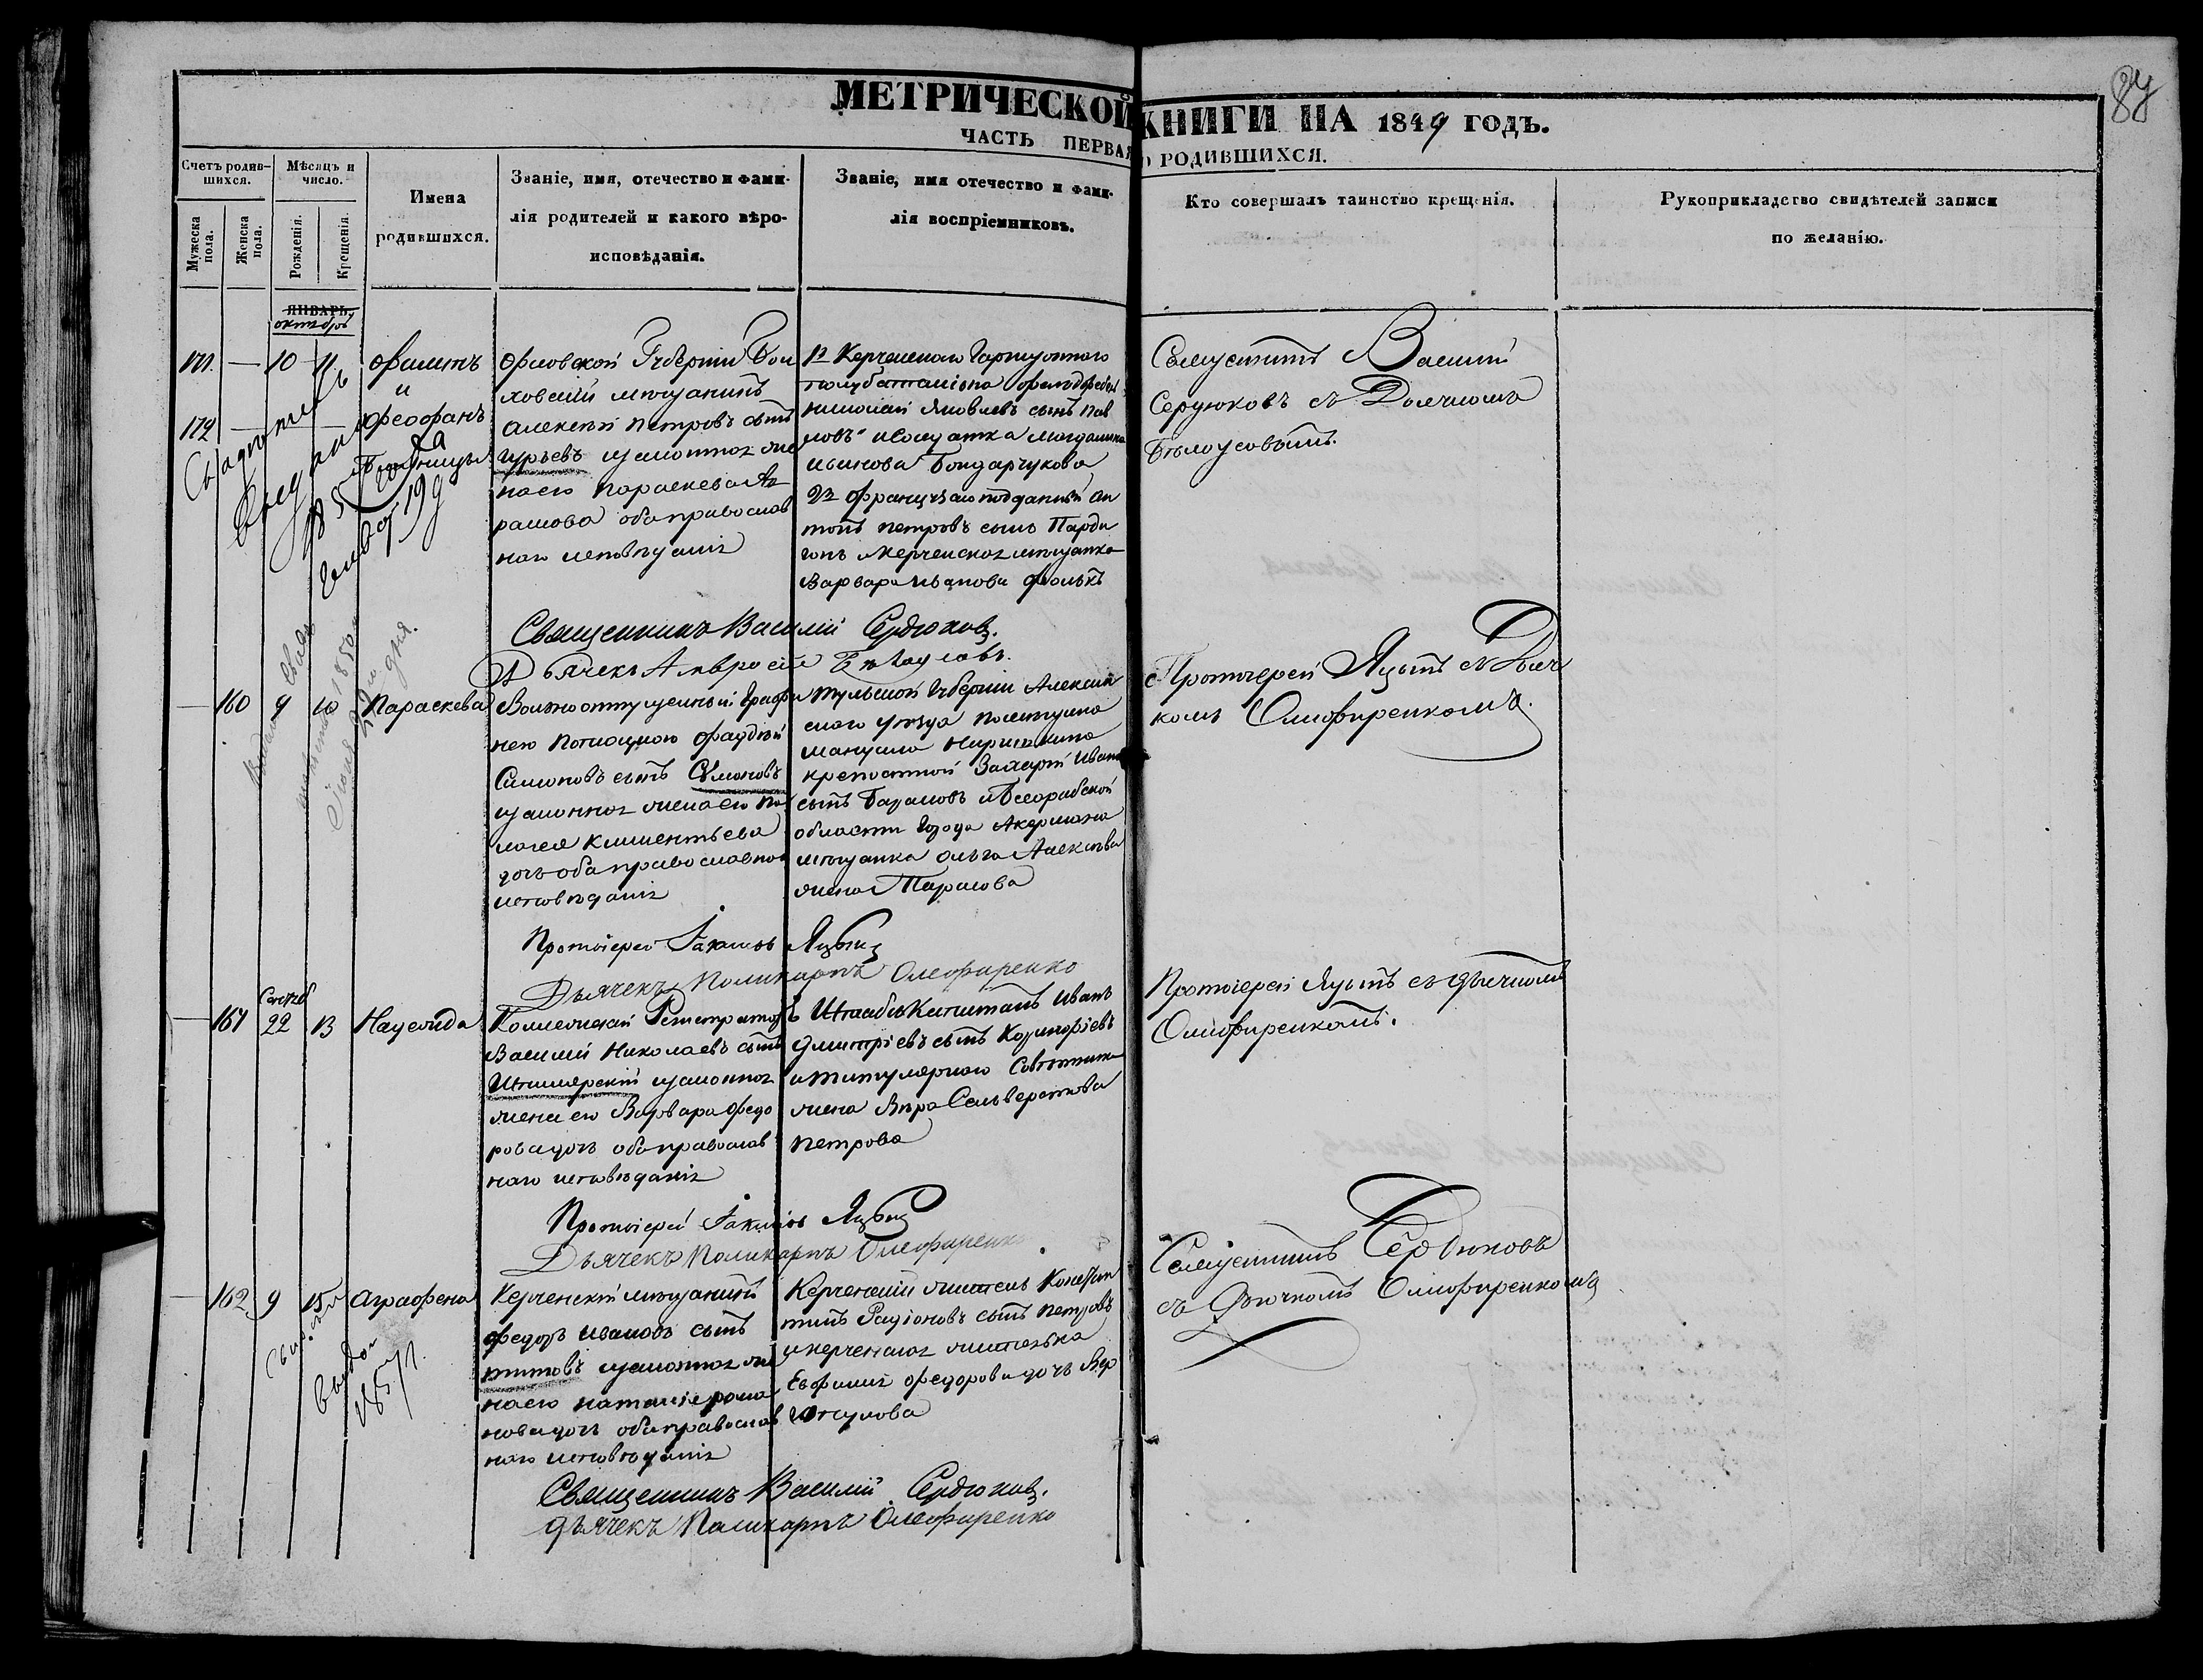 87
МЕТРИЧЕСКОЙ КНИГИ НА 1849 ГОДЪ.
ЧАСТЬ ПЕРВАЯ О РОДИВШИХСЯ.
Счетъ родив-
шихся.
Мужеска пола.
Женска пола.
Мѣсяцъ и
число.
Рожденія.
Крещенія.
Имена
родившихся.
Званіе, имя, отечество и фами-
лія родителей и какого вѣро-
исповѣданія.
Званіе, имя отечество и фами-
лія воспріемниковъ.
Кто совершалъ таинство крещенія.
Рукоприкладство свидѣтелей записи
по желанію.
ЯНВАРЬ.
октябрь
171. — 10 11.
172 — —
и
Феофанъ
близнецы
Орловской Губерніи Бол
ховскій мѣщанинъ
Алексѣй Петровъ сынъ
Гурьевъ и законная же
на его Параскева Аб
рамова оба православ
наго исповѣданія
1го Керченскаго Гарнизоннаго
полубаталіона фельдфебель
Николай Яковлевъ сынъ Пав
ловъ и солдатка
Иванова Бондарчукова
2го французкоподданный Ан
тонъ Петровъ сынъ
и керченская мѣщанка
Варвара Иванова
Священникъ Василій
Сердюковъ съ Дьячкомъ
Бѣлоусовымъ.
Священникъ Василій Сердюковъ.
Дьячекъ Амвросій Бѣлоусовъ.
— 160 9 10 Параскева
Вольноотпущенный Графи
нею Потоцкою Фаддѣй
Симоновъ сынъ Симоновъ
и законная жена его Пе
лагея Климентьева
дочь оба православнаго
исповѣданія
Тульской Губерніи Алексин
скаго уѣзда помещика
крепостной Захарій Иванъ
сынъ Барановъ и Бессарабской
области города Акермана
мѣщанка Ольга Алексѣева
жена Тарасова
Протоіерей Яцынъ съ Дьяч
комъ Олиофиренкомъ.
Протоіерей Іоакимъ Яцынъ
Дьячекъ Поликарпъ Олеофиренко
— 161 22 13
Коллежскій Регистраторъ
Василій Николаевъ сынъ
и законная
жена его Варвара Федо
рова дочь оба православ
наго исповѣданія
Штабсъ Капитанъ Иванъ
Дмитріевъ сынъ
и титулярнаго Совѣтника
жена Вѣра Сельверстова
Петрова
Протоіерей Яцынъ съ дьячкомъ
Олиофиренкомъ.
Протоіерей Іоакимъ Яцынъ
Дьячекъ Поликарпъ Олеофиренко
— 162 9 15 Аграфена
Керченскій мѣщанинъ
Федоръ Ивановъ сынъ
Титовъ и законная же
на его Наталія Рома
нова дочь оба православ
наго исповѣданія
Керченскій житель Констан
тинъ Радіоновъ сынъ Петровъ
и керченская жителька
Евфимія Федорова дочь
Священникъ Сердюковъ
съ Дьячкомъ Олиофиренкомъ
Священникъ Василій Сердюковъ.
Дьячекъ Поликарпъ Олеофиренко